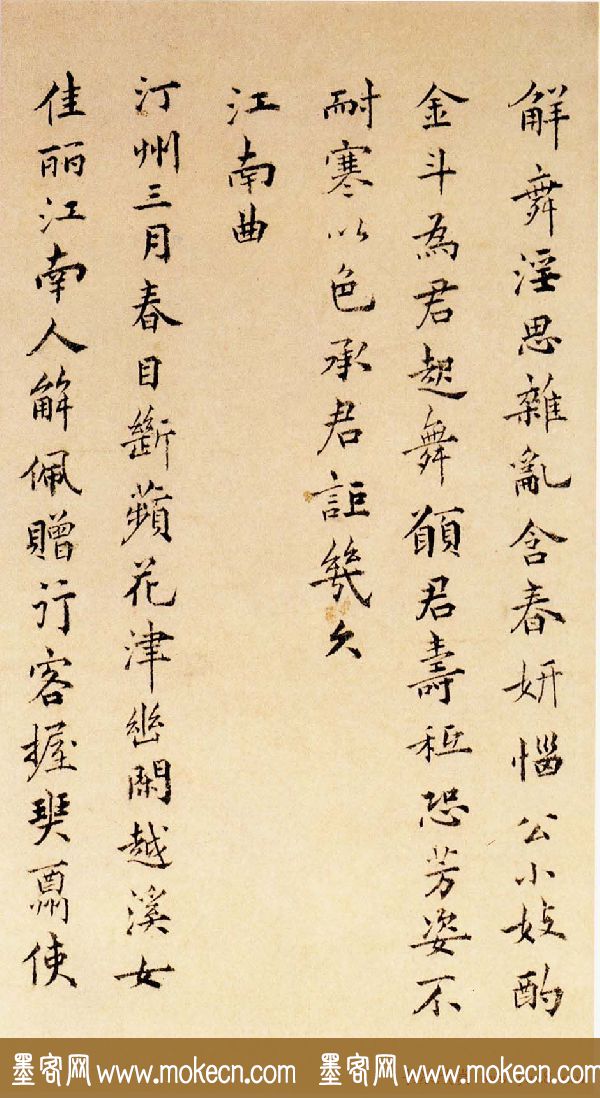 觧舞淫思雜亂含春妍惱公小妓酌
金斗為君起舞願君壽秪恐芳姿不
耐寒以色承君詎幾久
江南曲
汀州三月春目斷蘋花津幽閑越溪女
佳丽江南人觧佩贈行客握使
墨客网 www.mokecn.com 墨客网 www.mokecn.com